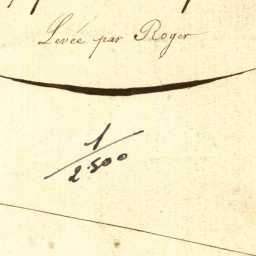 Levée par Roger
1/2500